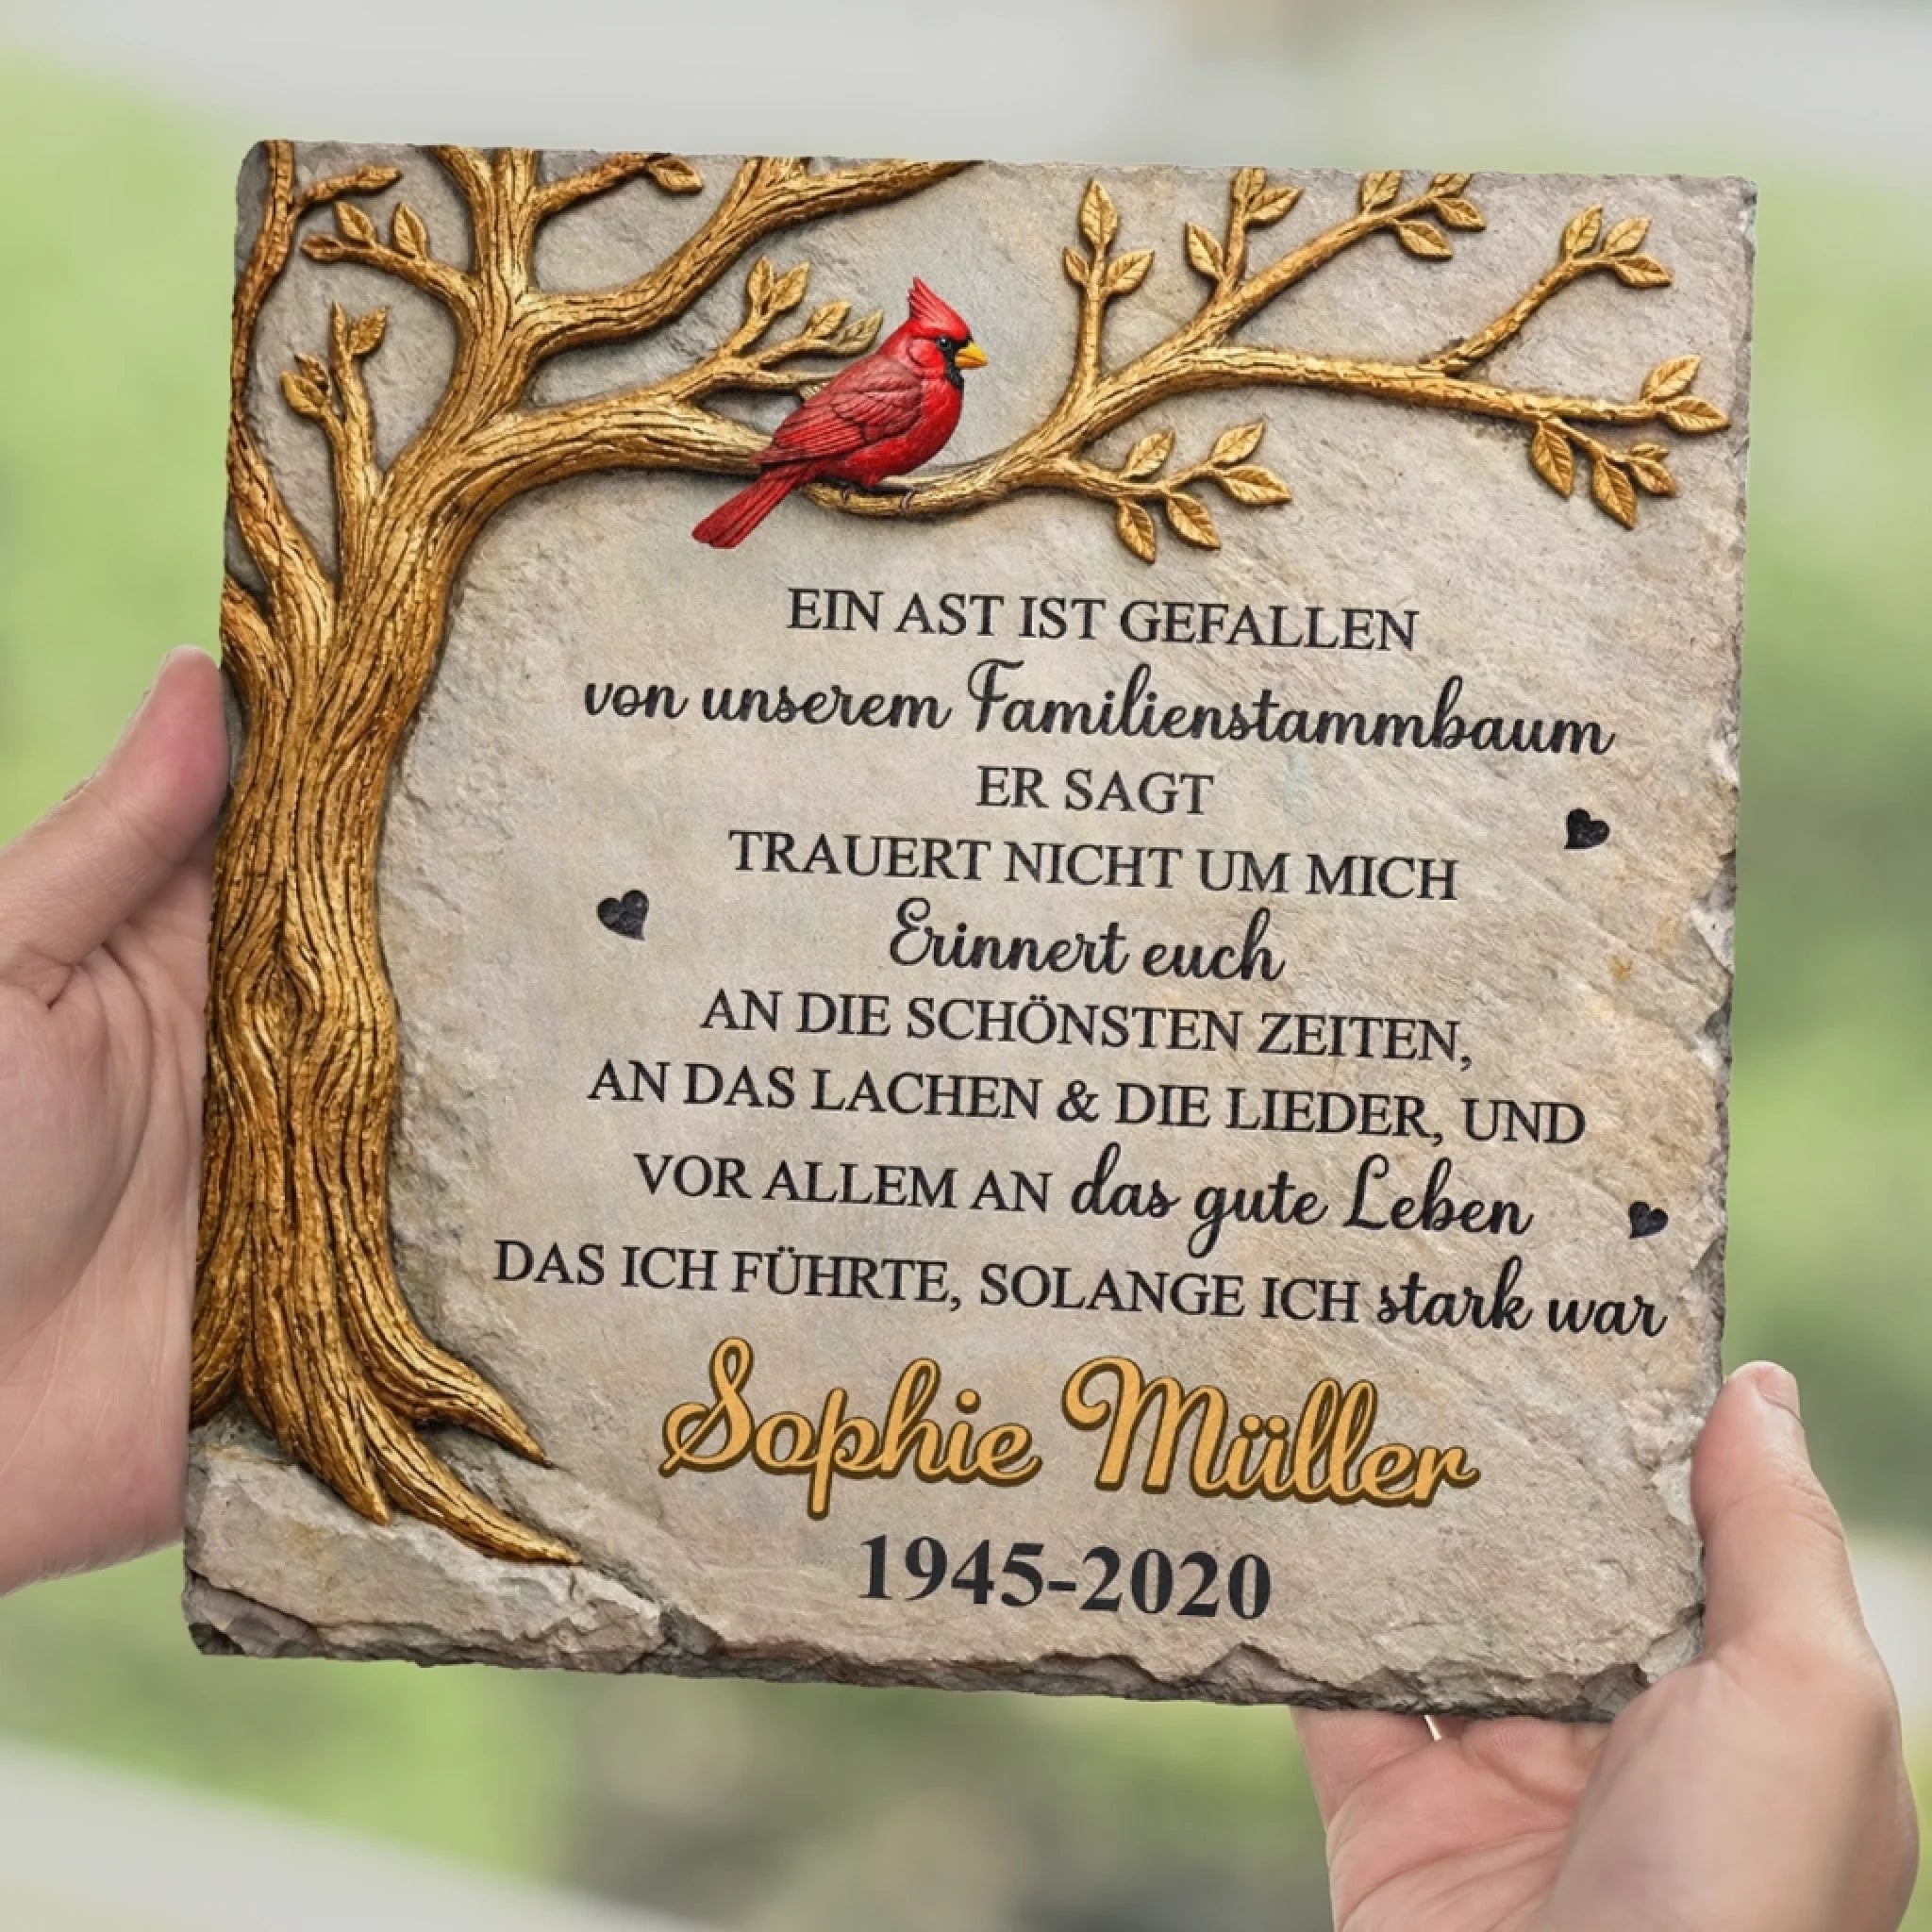 EIN AST IST GEFALLEN
von unserem Familienstammbaum
ER SAGT
TRAUERT NICHT UM MICH
Erinnert euch
AN DIE SCHÖNSTEN ZEITEN,
AN DAS LACHEN & DIE LIEDER, UND
VOR ALLEM AN das gute Leben
DAS ICH FÜHRTE, SOLANGE ICH stark war
Sophie Müller
1945-2020